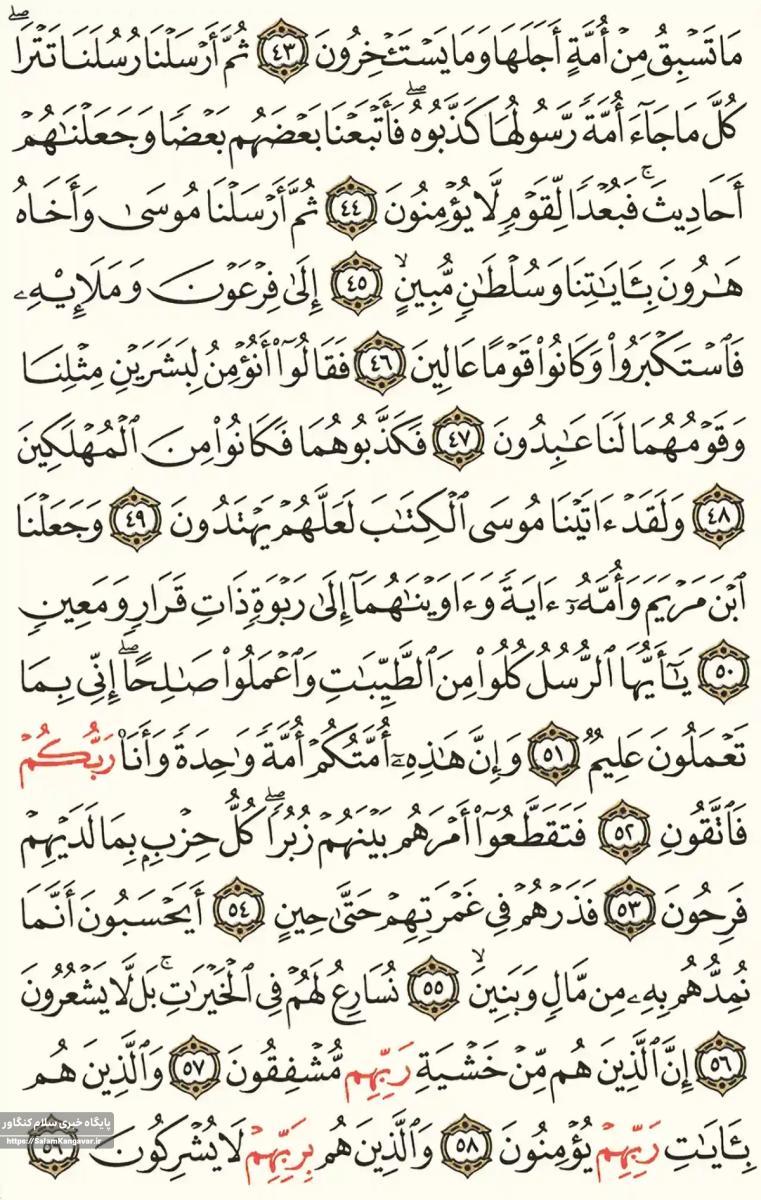 مَا تَسْبِقُ مِنْ أُمَّةٍ أَجَلَهَا وَمَا يَسْتَـْٔخِرُونَ ٤٣ ثُمَّ أَرْسَلْنَا رُسُلَنَا تَتْرَاۖ
كُلَّ مَا جَآءَ أُمَّةً رَّسُولُهَا كَذَّبُوهُۖ فَأَتْبَعْنَا بَعْضَهُم بَعْضًا وَجَعَلْنَٰهُمْ
أَحَادِيثَۚ فَبُعْدًا لِّقَوْمٍ لَّا يُؤْمِنُونَ ٤٤ ثُمَّ أَرْسَلْنَا مُوسَىٰ وَأَخَاهُ
هَٰرُونَ بِـَٔايَٰتِنَا وَسُلْطَٰنٍ مُّبِينٍۙ ٤٥ إِلَىٰ فِرْعَوْنَ وَمَلَإِيْهِۦ
فَٱسْتَكْبَرُوا۟ وَكَانُوا۟ قَوْمًا عَالِينَ ٤٦ فَقَالُوٓا۟ أَنُؤْمِنُ لِبَشَرَيْنِ مِثْلِنَا
وَقَوْمُهُمَا لَنَا عَٰبِدُونَ ٤٧ فَكَذَّبُوهُمَا فَكَانُوا۟ مِنَ ٱلْمُهْلَكِينَ
٤٨ وَلَقَدْ ءَاتَيْنَا مُوسَى ٱلْكِتَٰبَ لَعَلَّهُمْ يَهْتَدُونَ ٤٩ وَجَعَلْنَا
ٱبْنَ مَرْيَمَ وَأُمَّهُۥٓ ءَايَةً وَءَاوَيْنَٰهُمَآ إِلَىٰ رَبْوَةٍ ذَاتِ قَرَارٍ وَمَعِينٍ
٥٠ يَٰٓأَيُّهَا ٱلرُّسُلُ كُلُوا۟ مِنَ ٱلطَّيِّبَٰتِ وَٱعْمَلُوا۟ صَٰلِحًاۖ إِنِّى بِمَا
تَعْمَلُونَ عَلِيمٌ ٥١ وَإِنَّ هَٰذِهِۦٓ أُمَّتُكُمْ أُمَّةً وَٰحِدَةً وَأَنَا۠ رَبُّكُمْ
فَٱتَّقُونِ ٥٢ فَتَقَطَّعُوٓا۟ أَمْرَهُم بَيْنَهُمْ زُبُرًاۖ كُلُّ حِزْبٍۭ بِمَا لَدَيْهِمْ
فَرِحُونَ ٥٣ فَذَرْهُمْ فِى غَمْرَتِهِمْ حَتَّىٰ حِينٍ ٥٤ أَيَحْسَبُونَ أَنَّمَا
نُمِدُّهُم بِهِۦ مِن مَّالٍ وَبَنِينَۙ ٥٥ نُسَارِعُ لَهُمْ فِى ٱلْخَيْرَٰتِۚ بَل لَّا يَشْعُرُونَ
٥٦ إِنَّ ٱلَّذِينَ هُم مِّنْ خَشْيَةِ رَبِّهِم مُّشْفِقُونَ ٥٧ وَٱلَّذِينَ هُم
بِـَٔايَٰتِ رَبِّهِمْ يُؤْمِنُونَ ٥٨ وَٱلَّذِينَ هُم بِرَبِّهِمْ لَا يُشْرِكُونَ ٥٩
پایگاه خبری سلام کنگاور
https://SalamKangavar.ir